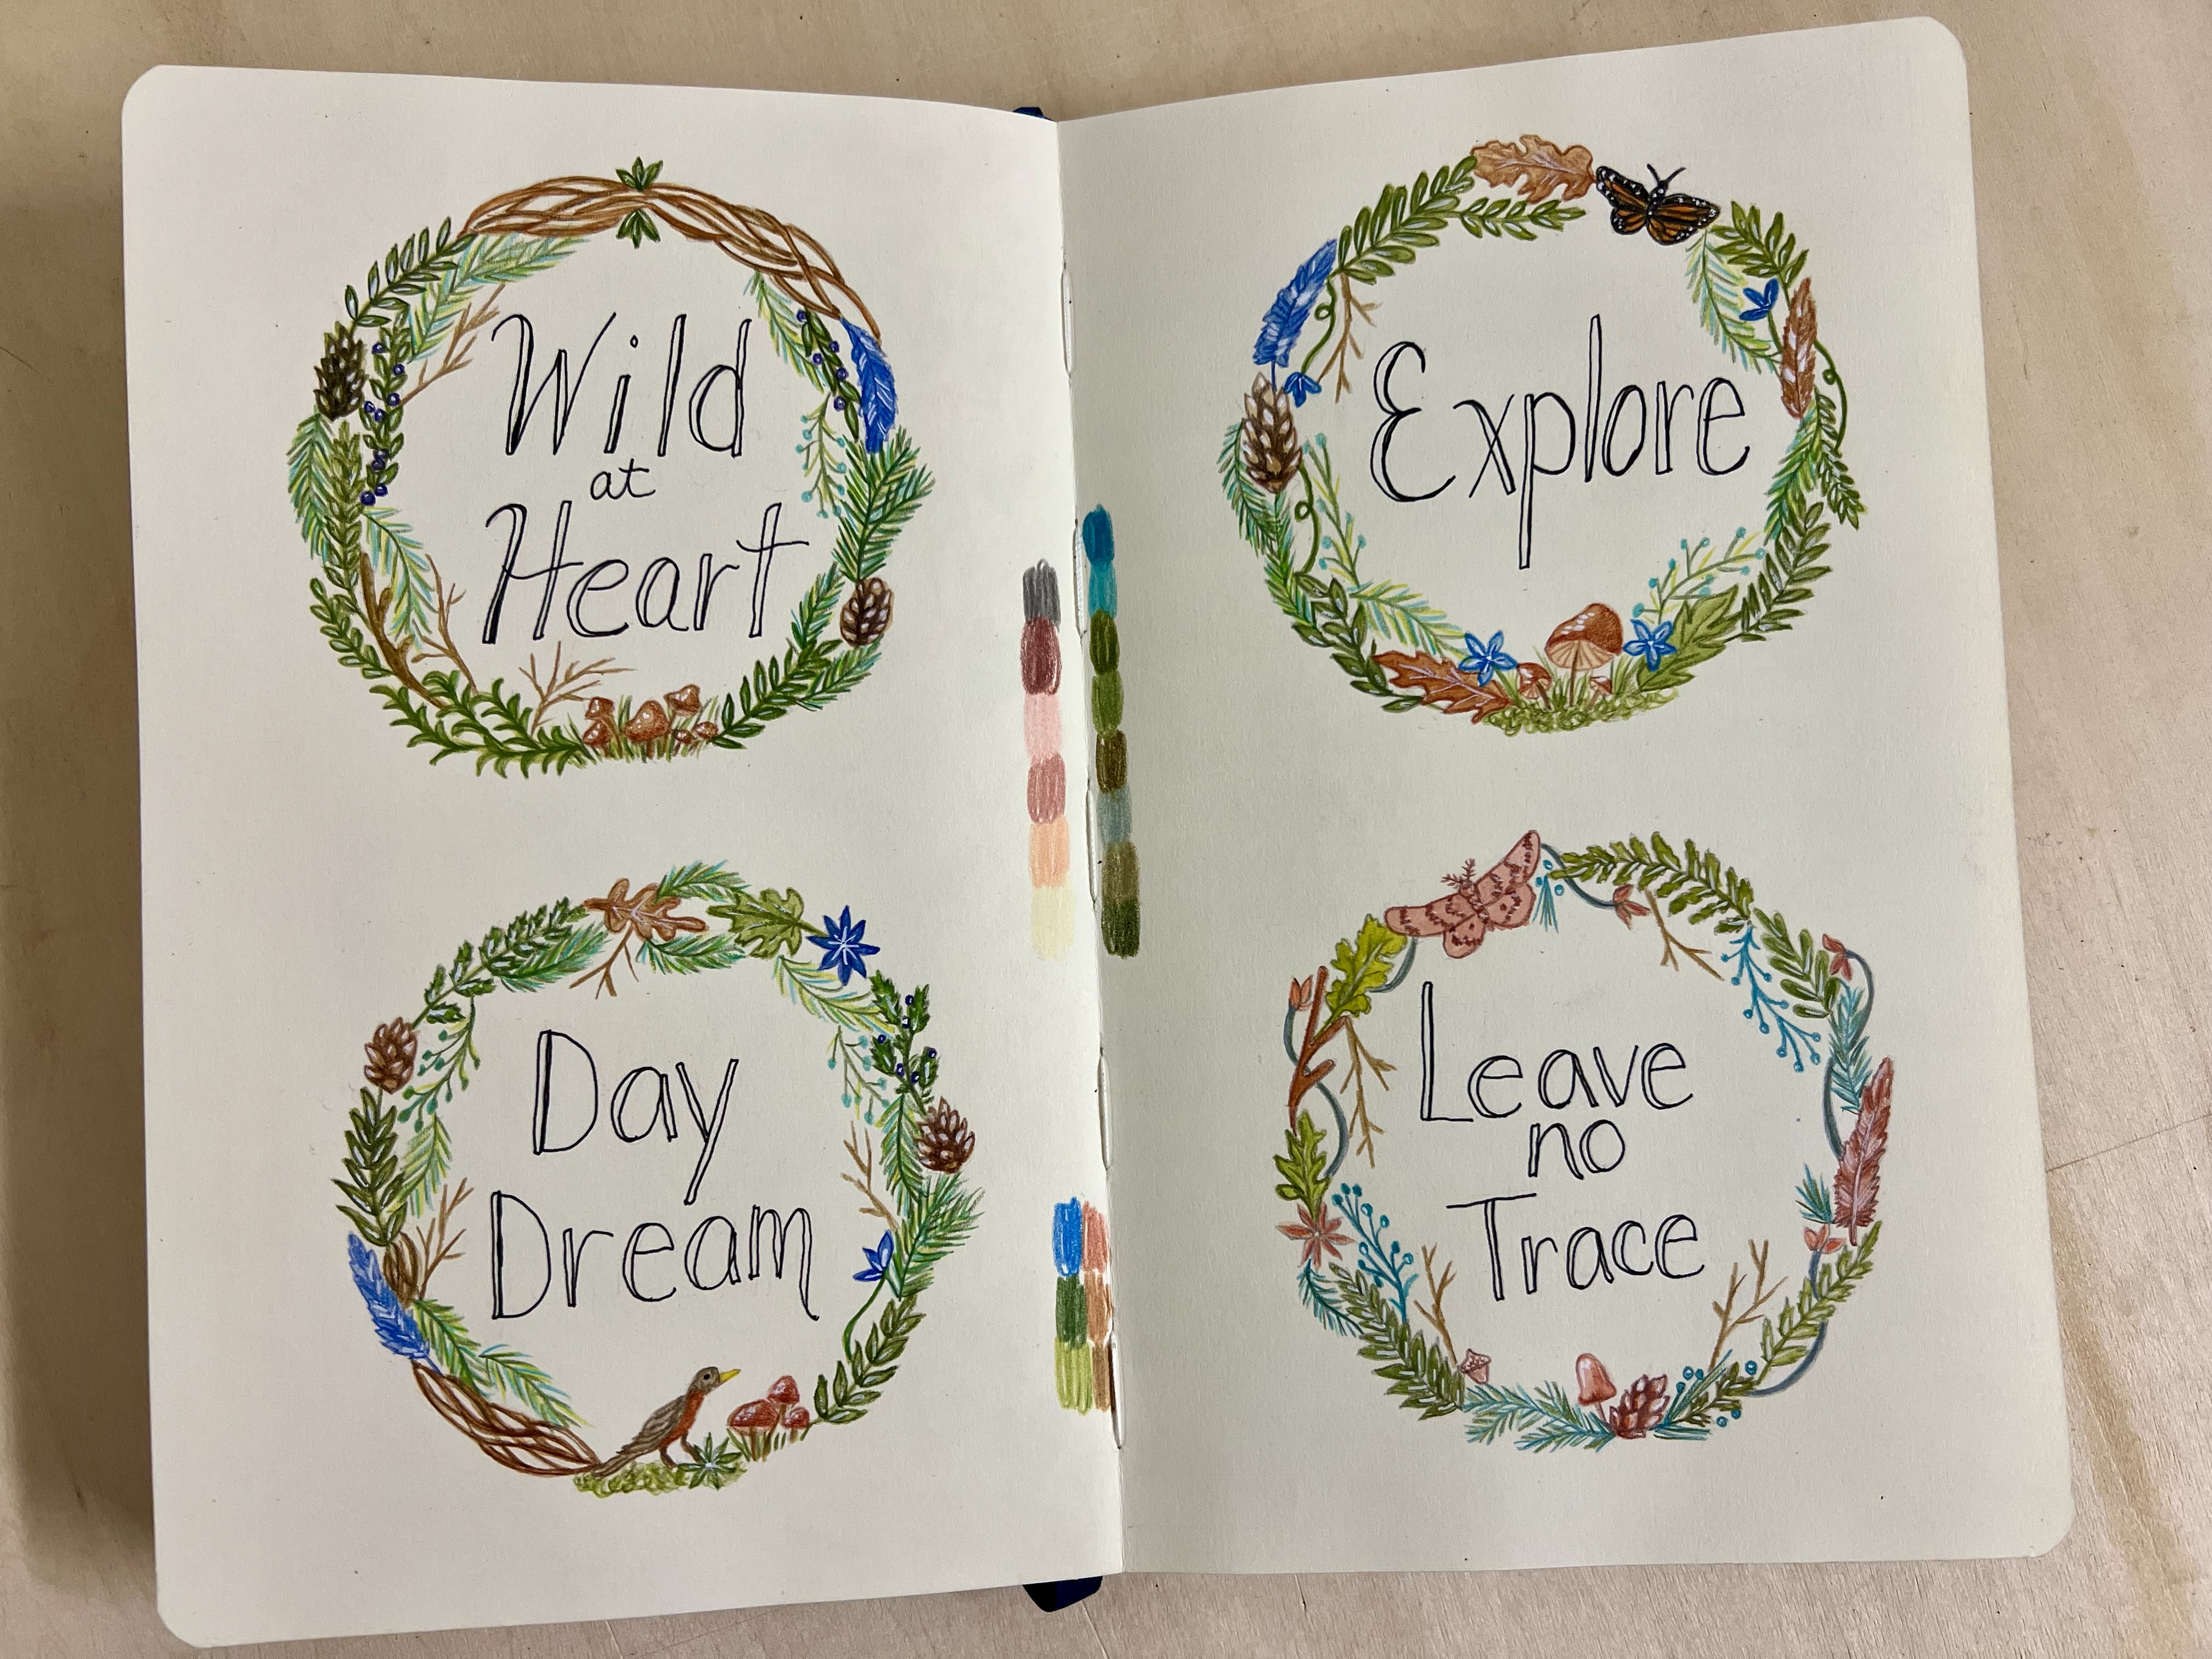 Wild
at
Heart
Day
Dream
Explore
Leave
no
Trace